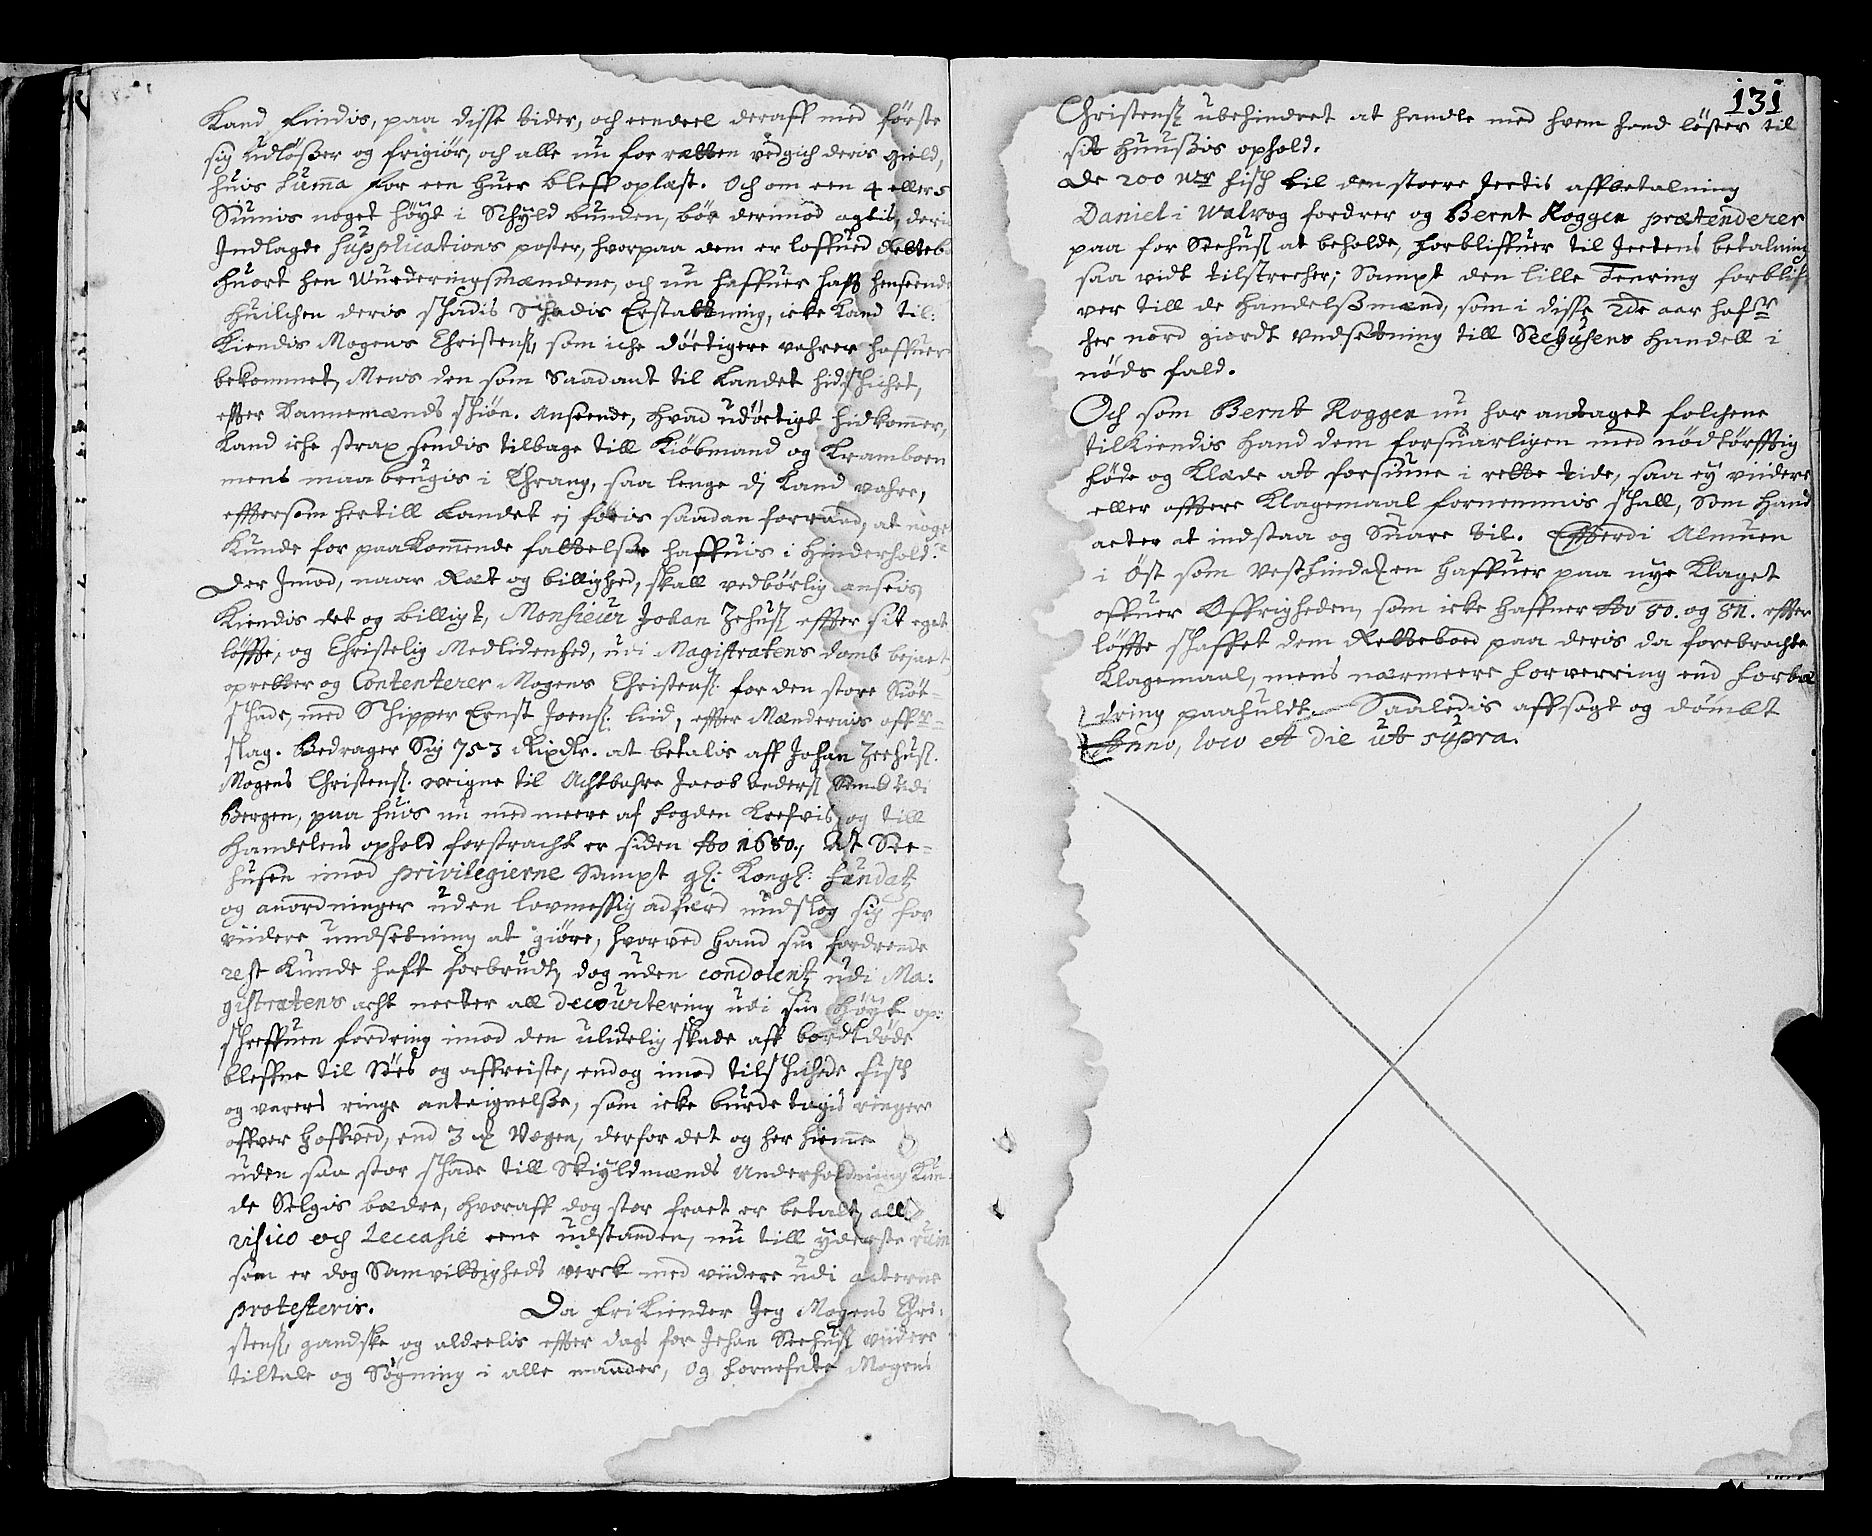 Kand findis, paa disse tider, och eendeel deraff med første
sig Udløßer og frigiør, och alle nu for retten vedgich deris gield,
huis Summa for een huer bleff oplæst. Och om een 4 eller 5
Sumis noget høyt i Schyld bunden, bør derimod agtis, deris
Indlagde Supplications poster, hvorpaa dem er loffued Rettebo
huort hen Wurderingsmændene, och nu haffuer hafft henseende
huilchen deris schadis Erstattning, icke Kand til:
Kiendis Mogens Christens: som iche dőctigere vahrer haffuer
bekommet, Mens den som Saadant til Landet hidschichet,
effter Dannemænds schiøn. Anseende, hvad udőctigt hidkommer,
Kand iche strax sendis tilbage till Kiøbmand og Kramboen
mens maa brugis i Thrang, saa lenge di Kand vahre,
effterson hertill Landet ej føris saadan forraad, at noget
Kunde for paakommende fattelse haffuis i hinderhold.
Der Imod, naar Ræt og billighed, skall vedbørlig anseeis,
Kiendis det og billigt, Monsieur Johan Zehus: effter sit eget
løffte, og Christelig Medlidenhed, udi Magistratens domb bejaet
opretter og Contenterer Mogens Christens: for den store Siøe-
schade, med Schipper Ernst Joens: liid, effter Mændernis offr-
slag. Bedrager Sig 753 Rixdr. at betalis aff Johan Zeehus:
Mogens Christens: veigne til Achtbahre Jacob Anders: udi
Bergen, paa huis nu med meere af fogden Krefvis, og till
Handelens ophold forstracht er siden Ao 1680, At See-
husen imod privilegierne Sampt gl: Kongl: fundatz
og anordninger uden lovmessig adfærd undslog sig for
viidere undsetning at giøre, hvorved hand sin fordrende
rest Kunde haft forbrudt, dog uden condolentz udi Ma:
gistratens acht necter all decourtering udi sin høyt op:
schreffuen fordring imod den ulidelig skade aff bordtdøde
bleffne til Søes og affreiste, endog imod tilschichede fisch
og varers ringe anteignelse, som icke burde tagis ringere
offver hoffved, end 3 Vogen, derfor det og her hiemme
uden saa stor schade till Skiyldmænds Underholdning Kun-
de Selgis bædre, hvoraff dog stor fract er betalt, all
risico och Leccasie eene udstanden, nu till yderste ruin
som er dog Samvittigheds verck med viidere udi acterne
protesteris. Da fri Kiender Jeg Mogens Chri:
stens: gandske og aldeelis effter dags for Johan Seehus: viidere
tiltale og Søgning i alle maader, Og fornefnte Mogens
131
Christens: ubehindret at handle med hvem hand løster til
sit huusis ophold.
De 200 Wr fisch til den stoere Jectis affbetalning
Daniel i Walvog fordrer og Bernt Roggen prætenderer
paa for Seehus: at beholde, forbliffuer til Jectens betalning
saa vidt tilstrecher; Sampt den lille Fenring forblif
ver till de Handelsmænd, som i disse 2de aar hafr
her nord giordt undsetning till Seehusens Handell i
nøds fald.
Och som Bernt Roggen nu har antaget folchene
tilkiendis hand dem forsuarligen med nødtørfftig
føde og Klæde at forsiune i rette tide, saa ey viidere
eller offtere Klagemaal fornemmis schall, som hand
acter at indstaa og Suare til. Efterdi Almuen
i Øst som Vestfinden haffuer paa nye Klaget
offuer Øffrigheden, som icke haffuer Ao 80. og 81. effter
løffte schaffet dem Retteboed paa deris da forebrachte
Klagemaal, mens nærmeere forverring end forbæ
dring paahuldt. Saaledis affsagt og dømbt
Anno, loco et die ut supra.